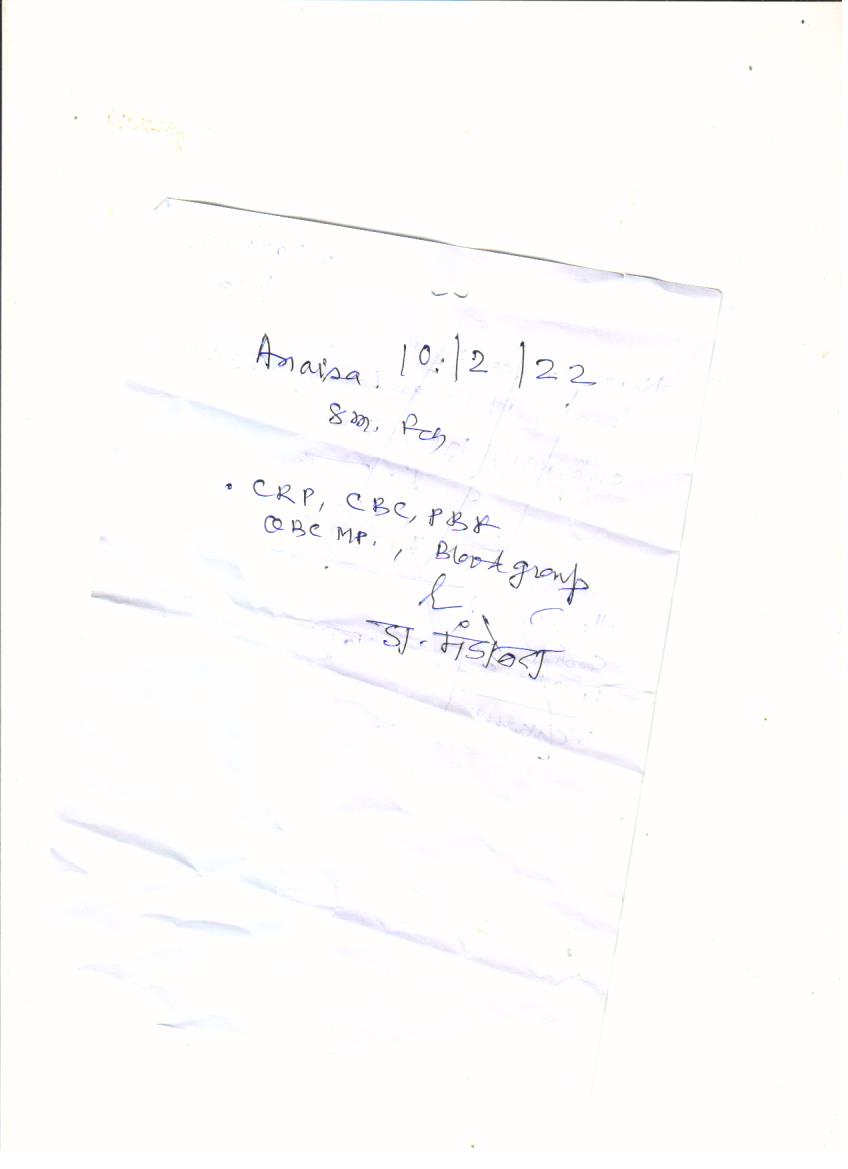 Anaisa. 10/12/22
8m. Fch
• CRP, CBC, PBF
QBC MP., Blood group
डा.